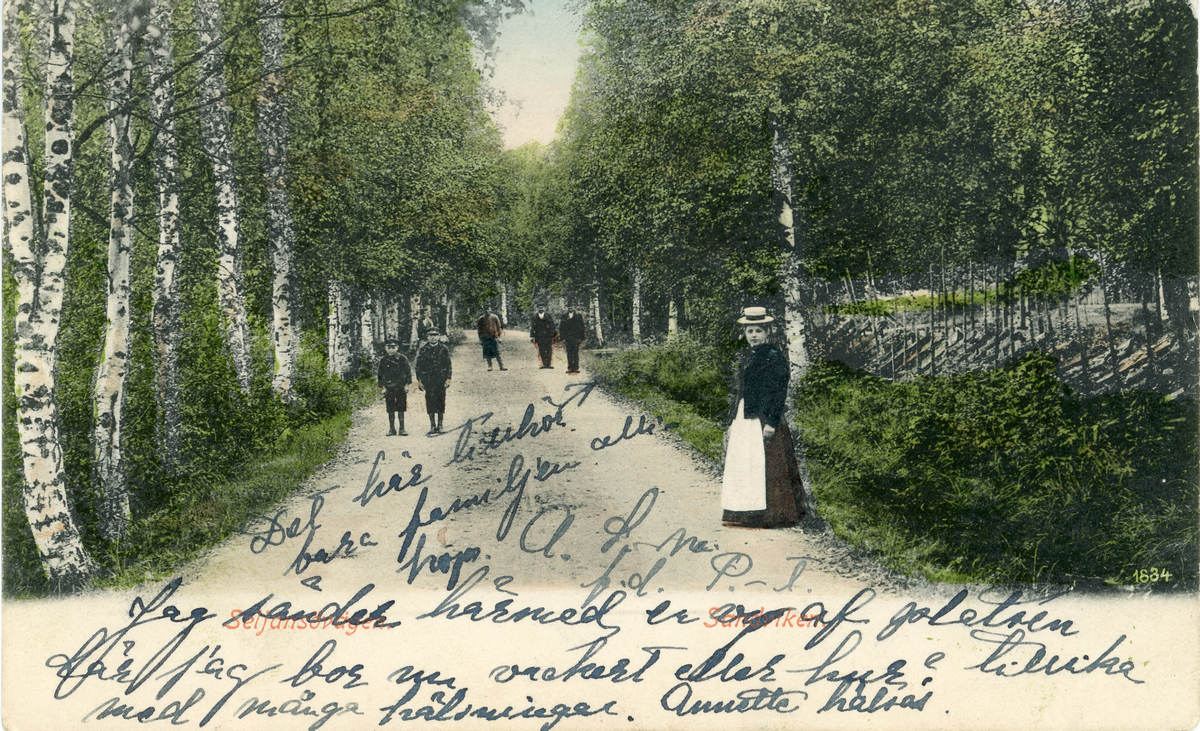 Det här tillhör
bara familjen alli-
hop.
1884
Seljansövägen. Sandviken.
Jag sänder härmed er vy af platsen
där jag bor nu vackert eller hur? tillika
med många hälsningar. Annette hälsas.